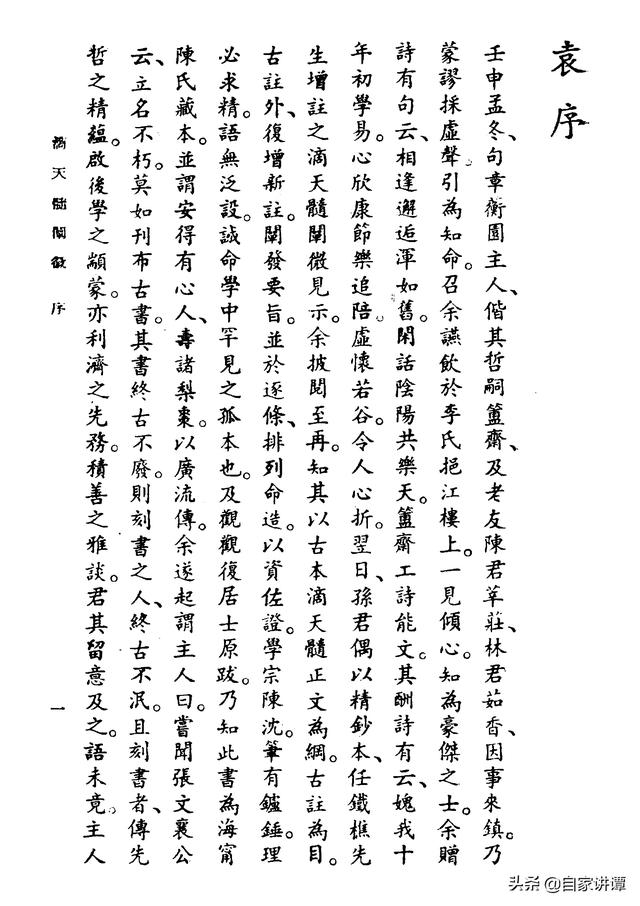 袁序
壬申孟冬、句章衡園主人、偕其哲嗣簠齋、及老友陳君莘莊、林君茹香、因事來鎮。乃
蒙謬採虛聲。引為知命。召余讌飲於李氏挹江樓上。一見傾心。知為豪傑之士。余贈
詩有句云、相逢邂逅渾如舊。閑話陰陽共樂天。簠齋工詩能文。其酬詩有云、媿我十
年初學易。心欣康節樂追陪。虛懷若谷。令人心折。翌日、孫君偶以精鈔本、任鐵樵先
生增註之滴天髓闡微見示。余披閱至再。知其以古本滴天髓正文為綱。古註為目。
古註外、復增新註。闡發要旨。並於逐條、排列命造。以資佐證。學宗陳沈。筆有鑪錘。理
必求精。語無泛設。誠命學中罕見之孤本也。及觀觀復居士原跋。乃知此書為海甯
陳氏藏本。並謂安得有心人、壽諸梨棗。以廣流傳。余遂起謂主人曰。嘗聞張文襄公
云、立名不朽。莫如刊布古書。其書終古不廢。則刻書之人、終古不泯。且刻書者、傳先
哲之精蘊。啟後學之顓蒙。亦利濟之先務。積善之雅談。君其留意及之。語未竟。主人
滴天髓闡微 序
一
头条 @自家讲谭